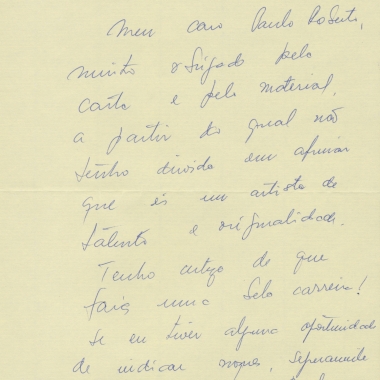 Meu caro Paulo Roberto,
muito obrigado pela
carta e pelo material,
a partir do qual não
tenho dúvida em afirmar
que és um artista de
talento e originalidade.
Tenho certeza de que
farás uma bela carreira!
Se eu tiver alguma oportunidade
de indicar nomes,